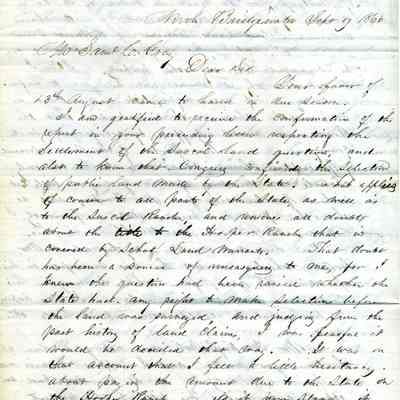 North Bridgewater Sept 19 1866
Dear Sir
Your favor of
23rd August came to hand in due season.
I am gratified to receive the confirmation of the
report in your preceding letter respecting the
Settlement of the Suscol Land question, and
also to know that Congress confirmed the selection
of public Land made by the State; which applies
of course to all parts of the State, as well as
to the Suscol Ranch, and removes all doubt
about the title to the Hooper Ranch that is
covered by School Land Warrants. That doubt
has been a source of uneasiness to me, for I
knew the question had been raised whether the
State had any right to make selections before
the land was surveyed, and judging from the
past history of land claims, I was fearful it
would be decided that way. It was on
that account that I felt a little hesitancy
about paying the amount due to the State on
the Hooper Ranch